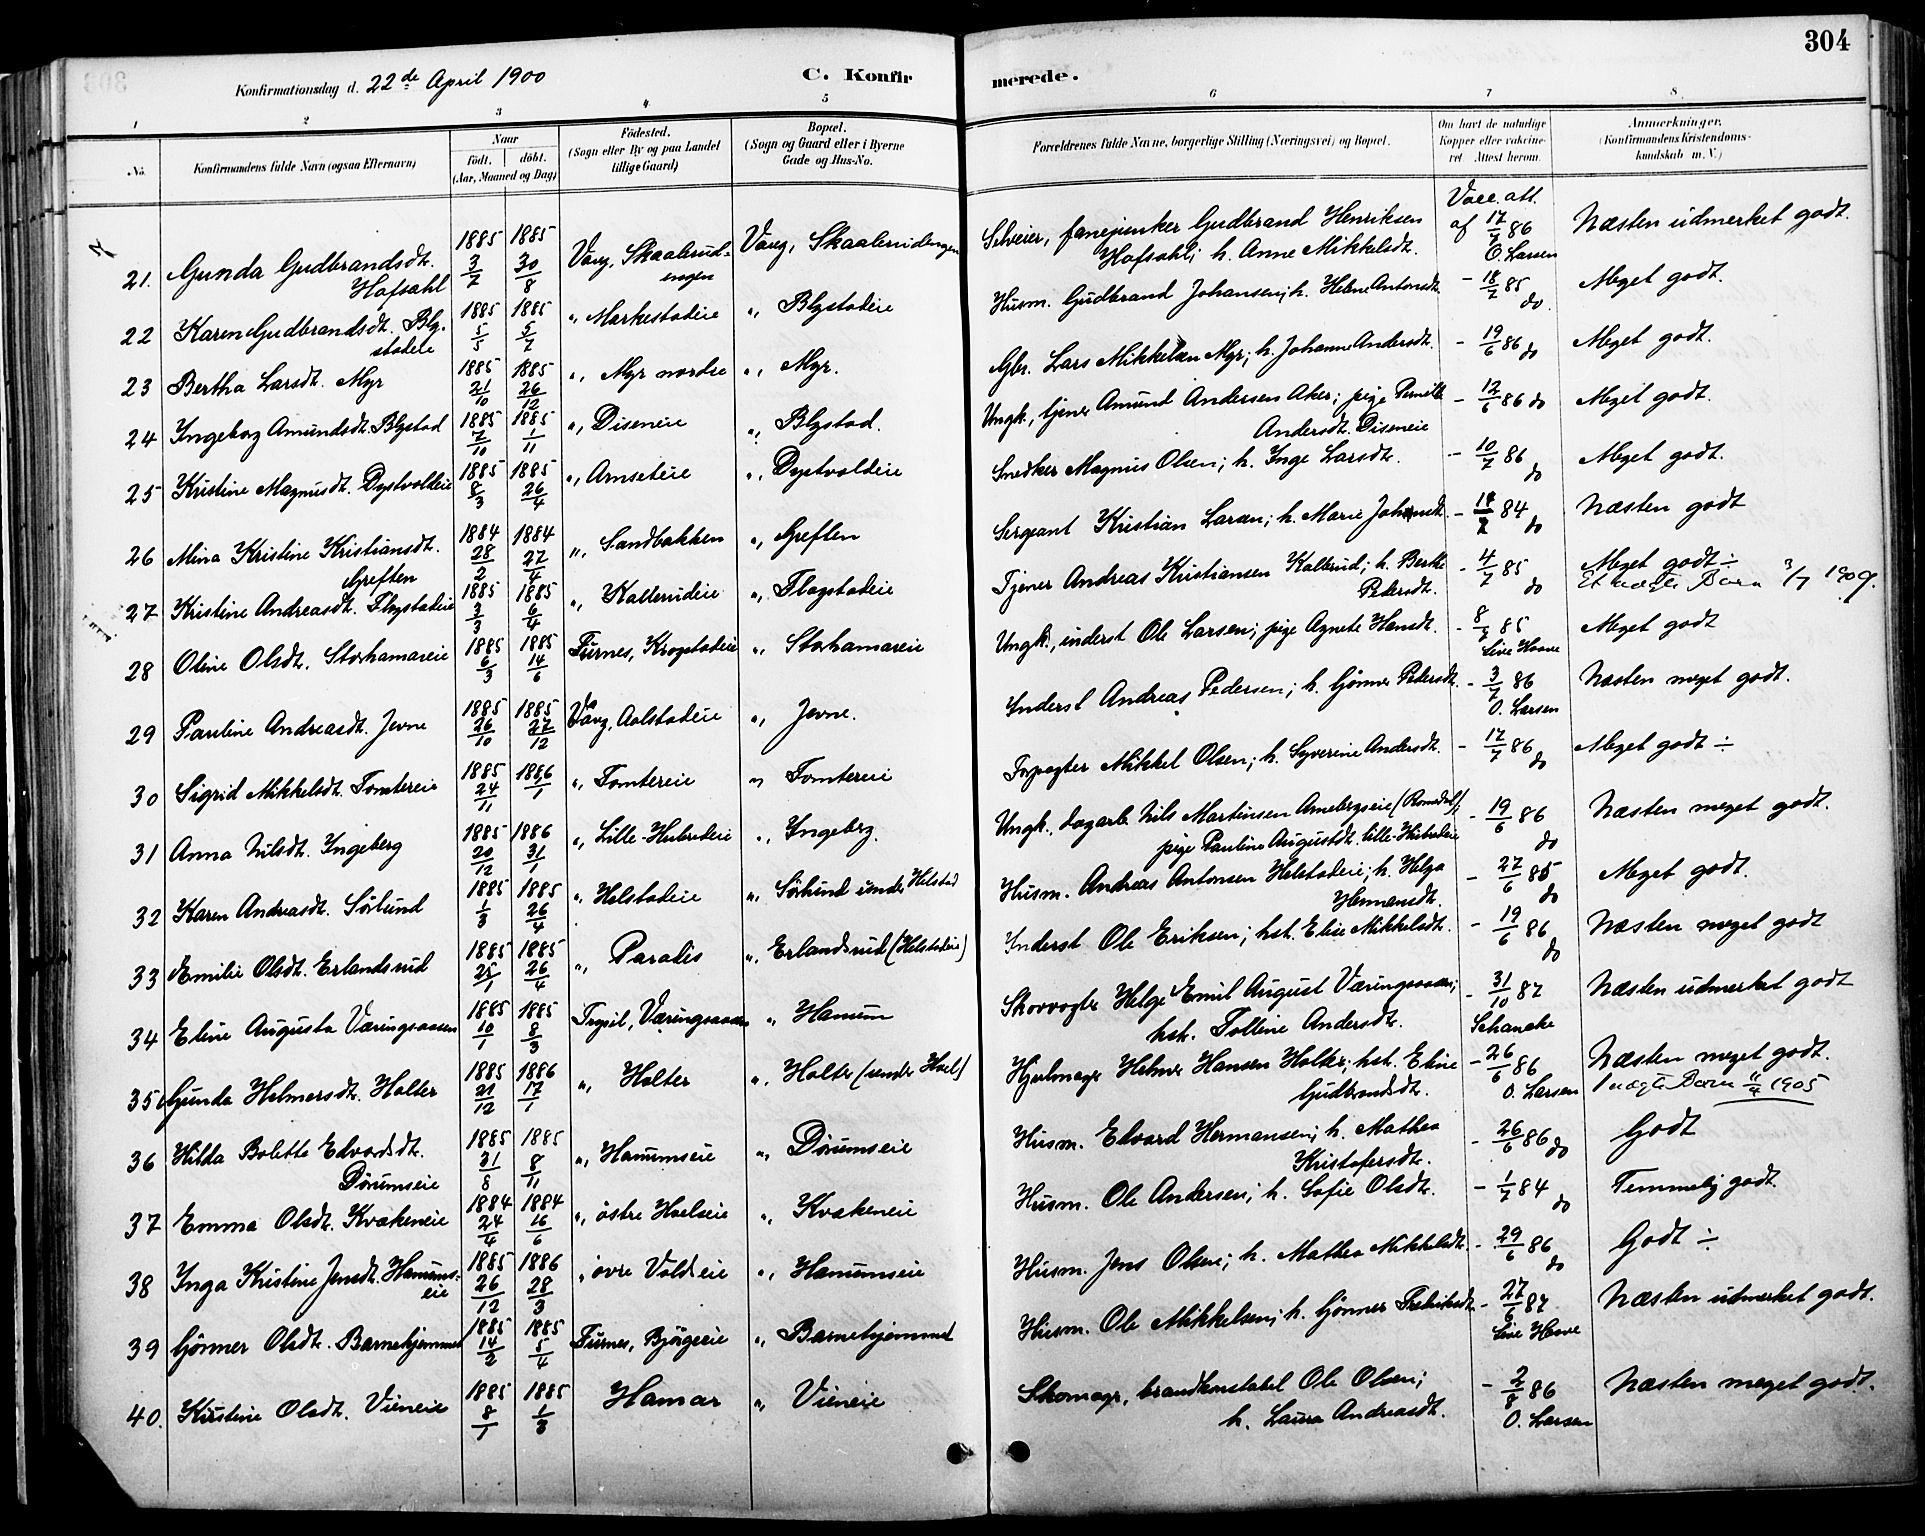 304
Konfirmationsdag d. 22de April 1900
C. Konfirmerede.
1 2 3 4 5 6 7 8
No.
Konfirmandens fulde Navn (ogsaa Efternavn)
Naar
födt. döbt.
(Aar, Maaned og Dag)
Födested.
(Sogn eller By og paa Landet
tillige Gaard)
Bopæl.
(Sogn og Gaard eller i Byerne
Gade og Hus-No.
Forældrenes fulde Navne, borgerlige Stilling (Næringsvei) og Bopæl.
Om havt de naturlige
Kopper eller vakcineret
Attest herom.
Anmerkninger.
(Konfirmandens Kristendomskundskab
m. V.)
21. Gunda Gudbrandsdt. Hofsahl 1885 3/7 1885 30/8 Vang, Skaalerudengen Vang, Skaalerudengen Selveier, fanejunker Gudbrand Henriksen Hofsahl; h. Anne Mikkelsdt. Vacc. att. af 17/7 86 O. Larsen Næsten udmerket godt.
22 Karen Gudbrandsdt. Blystadeie 1885 5/5 1885 5/7 " Markestadeie " Blystadeie Husm. Gudbrand Johansen; h. Helene Antonsdt. - 18/7 85 do Meget godt.
23 Bertha Larsdt. Myr 1885 21/10 1885 26/12 " Myr nordre " Myr. Gbr. Lars Mikkelsen Myr; h. Johanne Andersdt. - 19/6 86 do Meget godt.
24 Ingeborg Amundsdt. Blystad 1885 7/10 1885 1/11 " Diseneie " Blystad. Ungk., tjener Amund Andersen Aker; pige Pernille Andersdt. Diseneie - 12/6 86 do Meget godt.
25 Kristine Magnusdt. Dystvoldeie 1885 8/3 1885 26/4 " Arnseteie " Dystvoldeie Snedker Magnus Olsen; h. Inge Larsdt. - 10/7 86 do Meget godt.
26 Mina Kristine Kristiansdt. Greften 1884 28/2 1884 27/4 " Sandbakken " Greften Sergeant Kristian Larsen; h. Marie Johansdt. - 18/7 84 do Næsten godt
27 Kristine Andreasdt. Flagstadeie 1885 3/3 1885 6/4 " Kallerudeie " Flagstadeie Tjener Andreas Kristiansen Kallerud; h. Berthe Petersdt. - 4/7 85 do Meget godt ÷ Et uægte Barn 3/7 1909.
28 Oline Olsdt. Storhamareie 1885 6/3 1885 14/6 Furnes, Krogstadeie " Storhamareie Ungk., inderst Ole Larsen; pige Agnete Hansdt. - 8/7 85 Sive Hoave Meget godt
29 Pauline Andreasdt. Jevne 1885 26/10 1885 27/12 Vang, Aalstadeie " Jevne. Inderst Andreas Pedersen; h. Gønner Petersdt. - 3/7 86 O. Larsen Næsten meget godt.
30 Sigrid Mikkelsdt. Tomtereie 1885 24/11 1886 /1 " Tomtereie " Tomtereie Forpagter Mikkel Olsen; h. Syverine Andersdt. - 17/7 86 do Meget godt ÷
31 Anna Nilsdt. Ingeberg 1885 20/12 1886 31/1 " Lille-Hubredeie " Ingeberg. Ungk., dagarb. Nils Martinsen Arnebergseie (Romedal); pige Pauline Augustdt. Lille-Hubredeie - 19/6 86 do Næsten meget godt.
32 Karen Andreasdt. Sørlund 1885 1/3 1885 26/4 " Helstadeie " Sørlund under Helstad Husm. Andreas Antonsen Helstadeie; h. Helga Hermansdt. - 27/6 85 do Meget godt.
33 Emilie Olsdt. Erlandsrud 1885 25/1 1885 26/4 " Paradis " Erlandsrud (Helstadeie) Inderst Ole Eriksen; hst. Elise Mikkelsdt. - 19/6 86 do Næsten meget godt
34 Eline Augusta Væringsaasen 1885 10/1 1885 8/3 Trysil, Væringsaasen " Hanum Skovvogter Helge Emil August Væringsaasen; hst. Folline Andersdt. - 31/10 87 Schancke Næsten udmerket godt
35 Gunda Helmersdt. Holter 1885 21/12 1886 17/1 " Holter " Holter (under Hoel) Hjulmager Helmer Hansen Holter; hst. Eline Gudbrandsdt. - 26/6 86 O. Larsen Næsten meget godt. 1 uægte Barn 11/4 1905
36 Hilda Bolette Edvardsdt. Dørumseie 1885 31/8 1885 8/11 " Hanumseie " Dørumseie Husm. Edvard Hermansen; h. Mathea Kristofersdt. - 26/6 86 do Godt
37 Emma Olsdt. Kvækeneie 1884 24/4 1884 16/6 " østre Hoelseie " Kvækeneie Husm. Ole Andersen; h. Sofie Olsdt. - 1/7 84 do Temmelig godt.
38 Inga Kristine Jensdt. Hanumseie 1885 26/12 1886 28/3 " øvre Voldseie " Hanumseie Husm. Jens Olsen; h. Mathea Mikkelsdt. - 29/6 86 do Godt ÷
39 Gønner Olsdt. Barnehjemmet 1885 14/2 1885 5/4 Furnes, Bjørgeeie " Barnehjemmet Husm. Ole Mikkelsen; h. Gønner Fredriksdt. - 27/6 87 Sive Hoave Næsten udmerket godt.
40. Kristine Olsdt. Vieneie 1885 8/1 1885 1/3 Hamar " Vieneie Skomager, brandkonstabel Ole Olsen; h. Laura Andreasdt. - 2/8 86 O. Larsen Næsten meget godt.